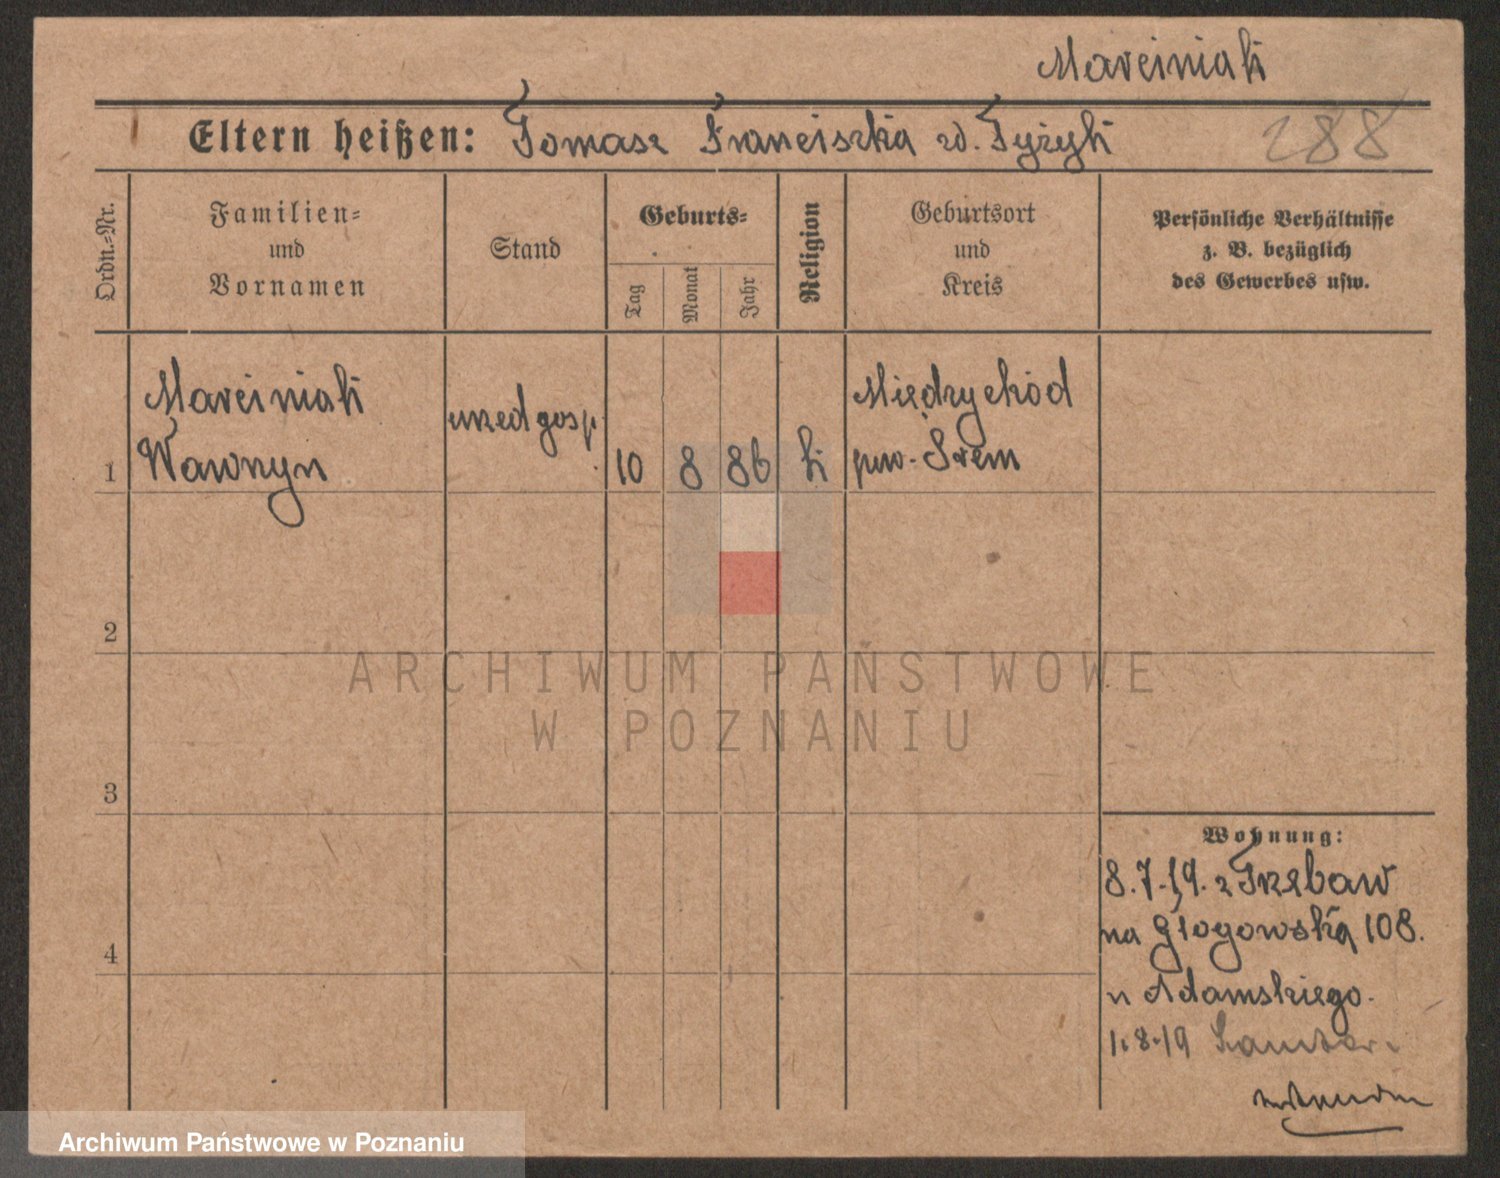 Marciniak
Eltern heißen: Tomasz Franciszka zd. Tyżyk
288
Ordn.=Nr.
Familien=
und
Vornamen
Stand
Geburts=
Tag
Monat
Jahr
Religion
Geburtsort
und
Kreis
Persönliche Verhältnisse
z. B. bezüglich
des Gewerbes usw.
Marciniak
urzed gosp.
Międzychód
1
Wawrzyn
10
8
86
k
pow. Śrem
2
3
4
Wohnung:
8.7.19. z Trzebaw
na Głogowską 108.
u Adamskiego.
1.8.19
ARCHIWUM PAŃSTWOWE
W POZNANIU
Archiwum Państwowe w Poznaniu